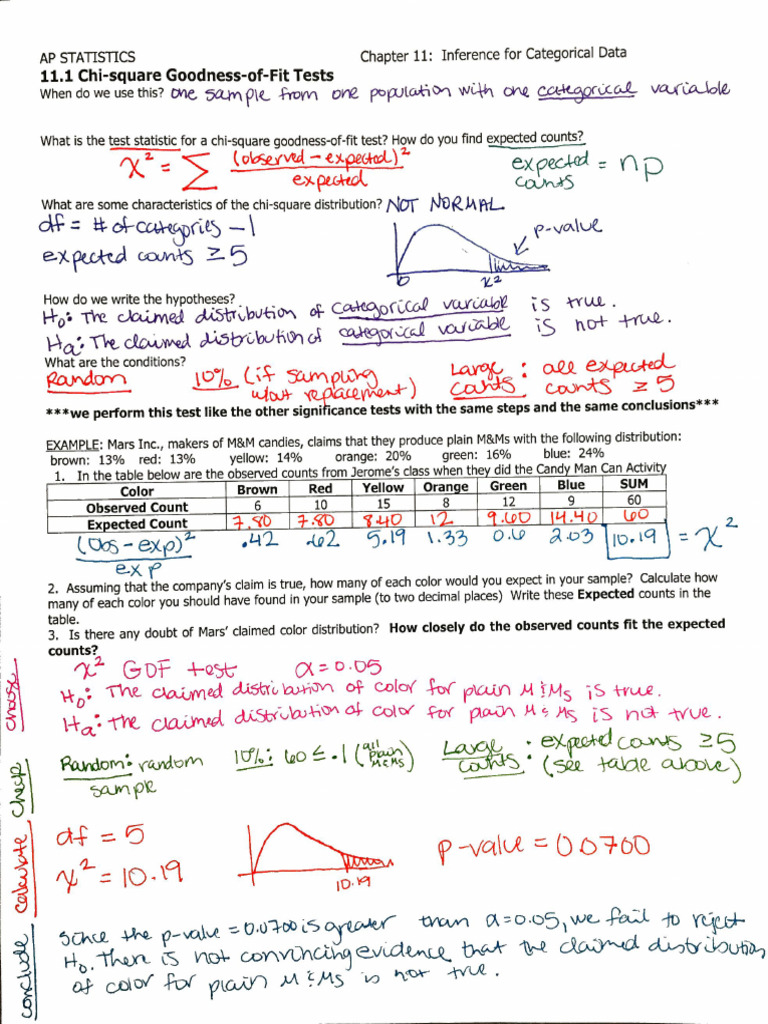 AP STATISTICS Chapter 11: Inference for Categorical Data
11.1 Chi-square Goodness-of-Fit Tests
When do we use this? One sample from one population with one categorical variable
What is the test statistic for a chi-square goodness-of-fit test? How do you find expected counts?
χ² = Σ (observed - expected)² / expected
expected counts = np
What are some characteristics of the chi-square distribution? NOT NORMAL
df = # of categories - 1
expected counts ≥ 5
p-value
0 χ²
How do we write the hypotheses?
H₀: The claimed distribution of categorical variable is true.
Hₐ: The claimed distribution of categorical variable is not true.
What are the conditions?
Random 10% (if sampling w/out replacement) Large counts: all expected counts ≥ 5
***we perform this test like the other significance tests with the same steps and the same conclusions***
EXAMPLE: Mars Inc., makers of M&M candies, claims that they produce plain M&Ms with the following distribution:
brown: 13% red: 13% yellow: 14% orange: 20% green: 16% blue: 24%
1. In the table below are the observed counts from Jerome's class when they did the Candy Man Can Activity
Color Brown Red Yellow Orange Green Blue SUM
Observed Count 6 10 15 8 12 9 60
Expected Count 7.80 7.80 8.40 12 9.60 14.40 60
(obs - exp)² / exp .42 .62 5.19 1.33 0.6 2.03 10.19 = χ²
2. Assuming that the company's claim is true, how many of each color would you expect in your sample? Calculate how
many of each color you should have found in your sample (to two decimal places) Write these Expected counts in the
table.
3. Is there any doubt of Mars' claimed color distribution? How closely do the observed counts fit the expected
counts?
choose
χ² GOF test α = 0.05
H₀: The claimed distribution of color for plain M&Ms is true.
Hₐ: The claimed distribution of color for plain M&Ms is not true.
check
Random: random sample
10%: 60 ≤ .1 (all plain M&Ms)
Large counts: expected counts ≥ 5 (see table above)
calculate
df = 5
χ² = 10.19
10.19
p-value = 0.0700
conclude
Since the p-value = 0.0700 is greater than α = 0.05, we fail to reject
H₀. There is not convincing evidence that the claimed distribution
of color for plain M&Ms is not true.